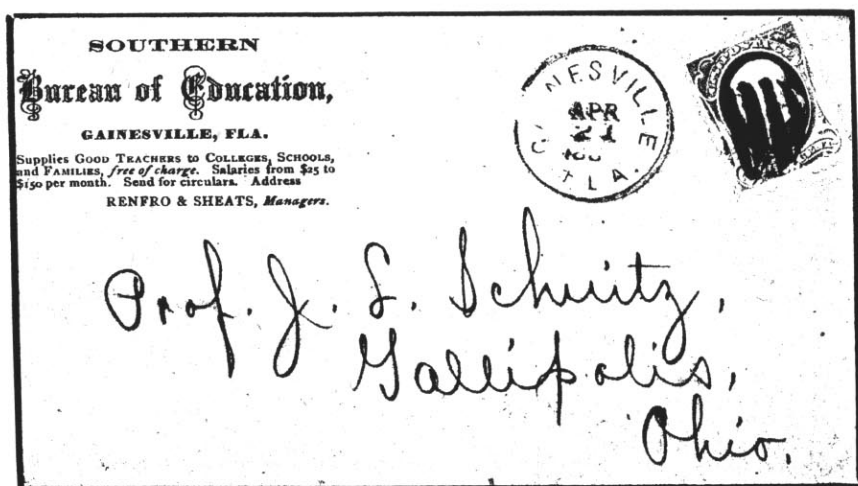 SOUTHERN
Bureau of Education,
GAINESVILLE, FLA.
Supplies GOOD TEACHERS to COLLEGES, SCHOOLS,
and FAMILIES, free of charge. Salaries from $25 to
$150 per month. Send for circulars. Address
RENFRO & SHEATS, Managers.
GAINESVILLE
APR
21
FLA.
Prof. J. L. Schuitz,
Gallipolis,
Ohio.